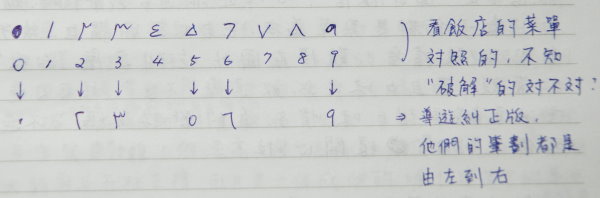 ● ١ ٢ ٣ ٤ ٥ ٦ ٧ ٨ ٩ 看飯店的菜單
0 1 2 3 4 5 6 7 8 9 對照的,不知
↓ ↓ ↓ ↓ ↓ ↓ "破解"的對不對?
٠ ٢ ٣ ٥ ٦ ٩ ⇒ 導遊糾正版,
他們的筆劃都是
由左到右